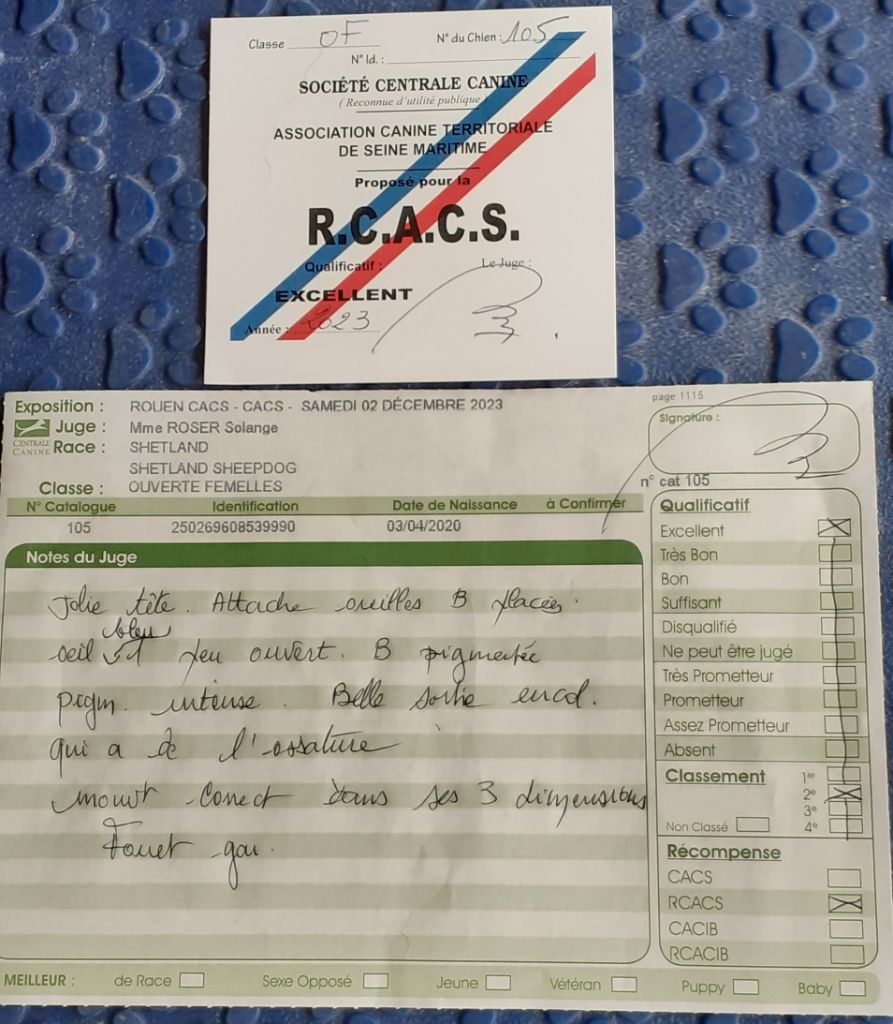 Classe OF N° du Chien : 105
N° Id. :
SOCIÉTÉ CENTRALE CANINE
( Reconnue d'utilité publique )
ASSOCIATION CANINE TERRITORIALE
DE SEINE MARITIME
Proposé pour la
R.C.A.C.S.
Qualificatif : Le Juge :
EXCELLENT
Année : 2023
page 1115
Exposition : ROUEN CACS - CACS - SAMEDI 02 DÉCEMBRE 2023
Signature :
Juge : Mme ROSER Solange
CENTRALE CANINE
Race : SHETLAND
SHETLAND SHEEPDOG
Classe : OUVERTE FEMELLES
n° cat 105
N° Catalogue Identification Date de Naissance à Confirmer
105 250269608539990 03/04/2020
Notes du Juge
Jolie tête. Attache oreilles B placées.
bleu
oeil peu ouvert. B pigmentée
pigm. intense. Belle sortie encol.
qui a de l'ossature
mouvt correct dans ses 3 dimensions
Fouet gai.
Qualificatif
Excellent
Très Bon
Bon
Suffisant
Disqualifié
Ne peut être jugé
Très Prometteur
Prometteur
Assez Prometteur
Absent
Classement 1er
2e
3e
Non Classé 4e
Récompense
CACS
RCACS
CACIB
RCACIB
MEILLEUR : de Race Sexe Opposé Jeune Vétéran Puppy Baby